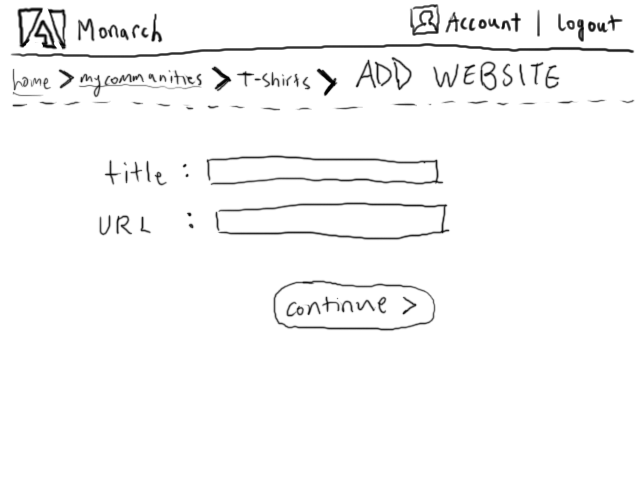 Monarch Account | Logout
home > mycommunities > T-shirts > ADD WEBSITE
title :
URL :
continue >